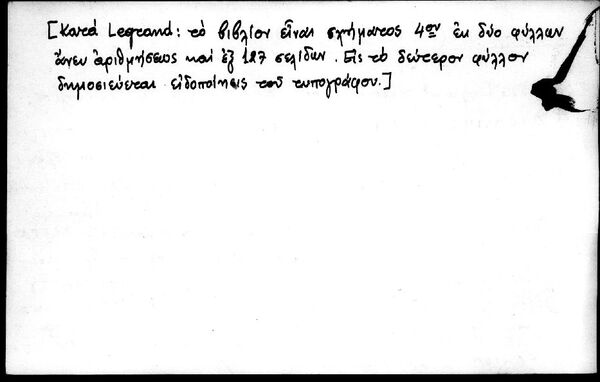 [Κατά Legrand: τὸ βιβλίον εἶναι σχήματος 4ον ἐκ δύο φύλλων
ἄνευ ἀριθμήσεως καί ἐξ 127 σελίδων. Εἰς τὸ δεύτερον φύλλον
δημοσιεύεται εἰδοποίησις τοῦ τυπογράφου.]